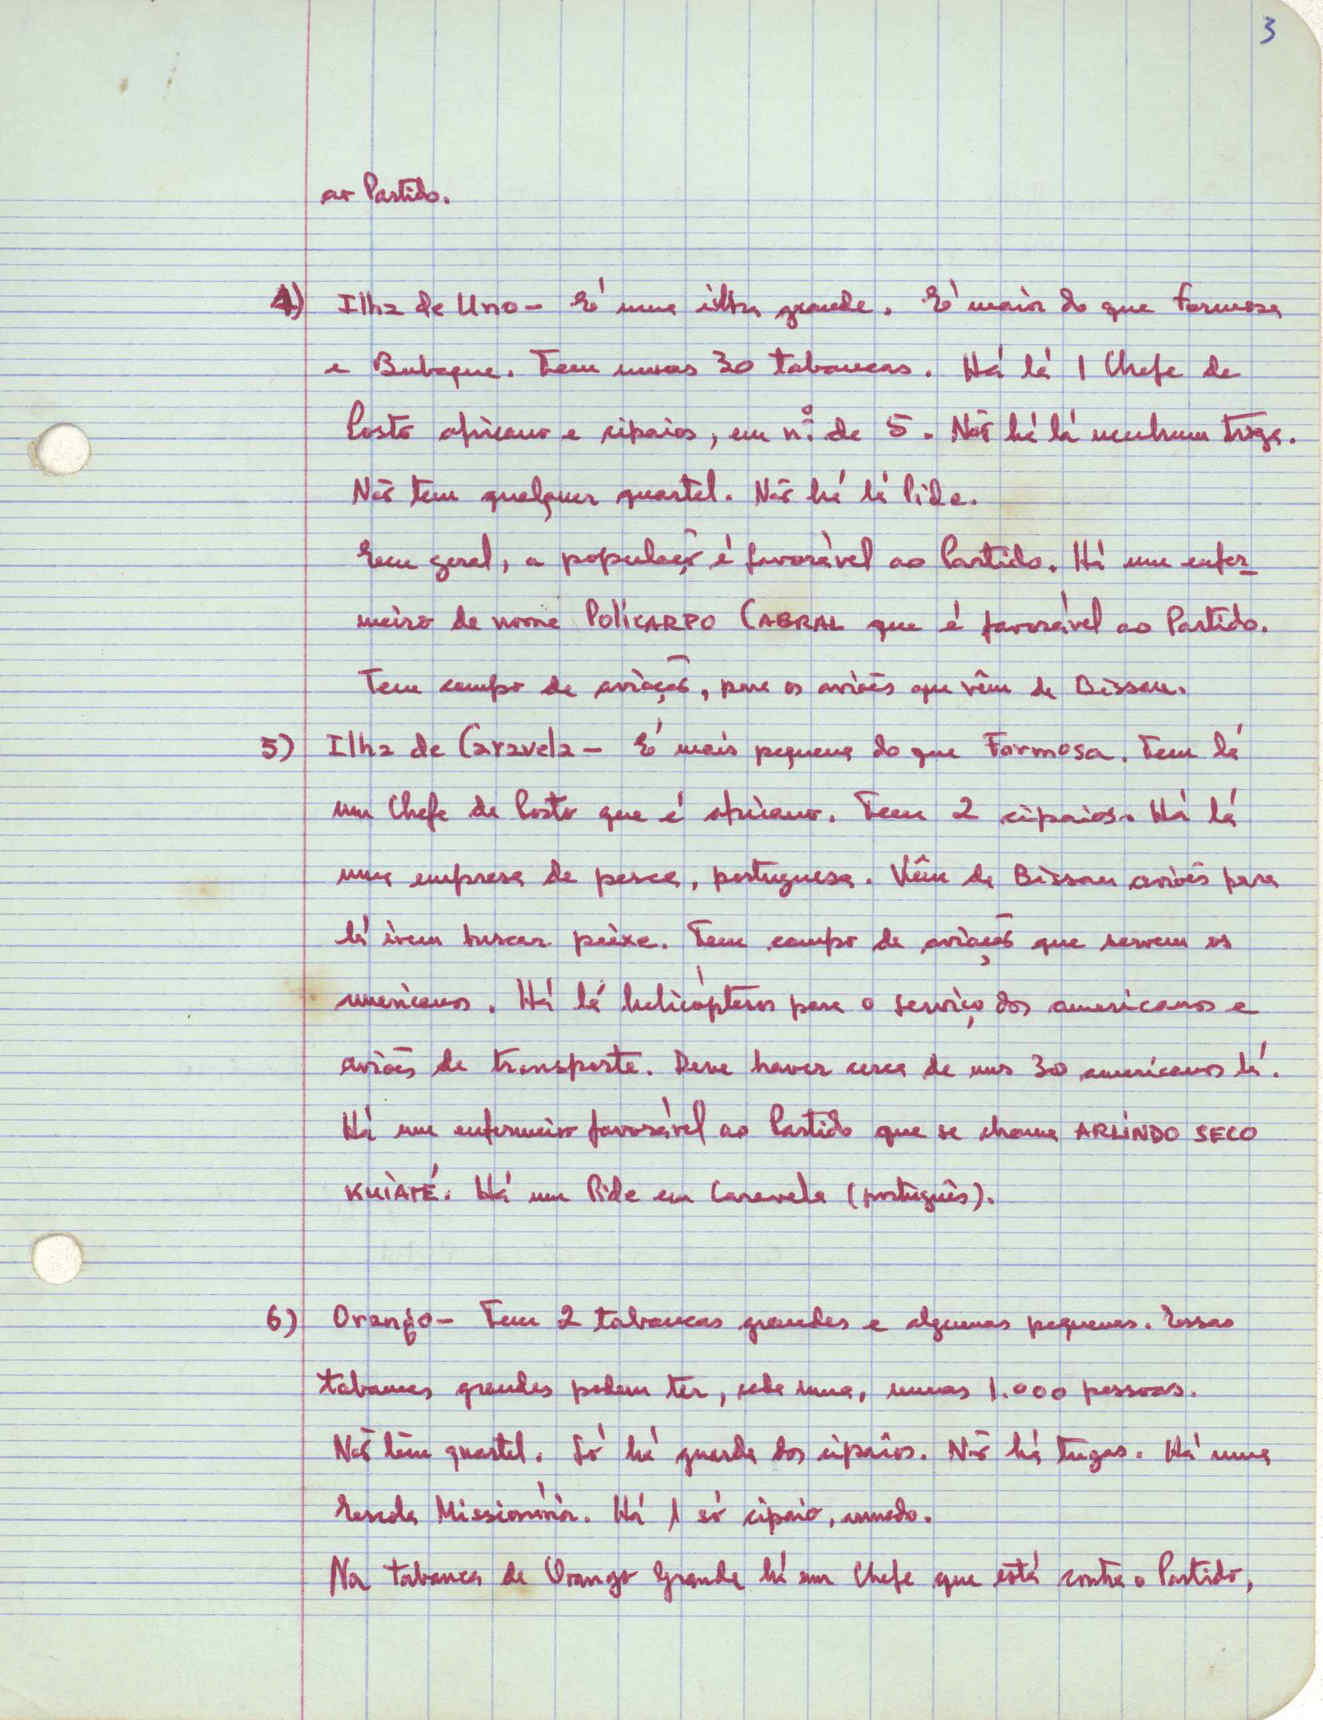 3
ao Partido.
4) Ilha de Uno - É uma ilha grande. É maior do que Formosa
e Bubaque. Tem umas 30 tabancas. Há lá 1 Chefe de
Posto africano e cipaios, em nº de 5. Não há lá nenhum tuga.
Não tem qualquer quartel. Não há lá Pide.
Em geral, a população é favorável ao Partido. Há um enfer-
meiro de nome POLÍCARPO CABRAL que é favorável ao Partido.
Tem campo de aviação, para os aviões que vêm de Bissau.
5) Ilha de Caravela - É mais pequena do que Formosa. Tem lá
um Chefe de Posto que é africano. Tem 2 cipaios. Há lá
uma empresa de pesca, portuguesa. Vêm de Bissau aviões para
lá irem buscar peixe. Tem campo de aviação que servem os
americanos. Há lá helicópteros para o serviço dos americanos e
aviões de transporte. Deve haver cerca de uns 30 americanos lá.
Há um enfermeiro favorável ao Partido que se chama ARLINDO SECO
KUIATÉ. Há um Pide em Caravela (português).
6) Orango - Tem 2 tabancas grandes e algumas pequenas. Essas
tabancas grandes podem ter, cada uma, umas 1.000 pessoas.
Não têm quartel. Só há guarda dos cipaios. Não há tugas. Há uma
Escola Missionária. Há 1 só cipaio, armado.
Na tabanca de Orango Grande há um Chefe que está contra o Partido,